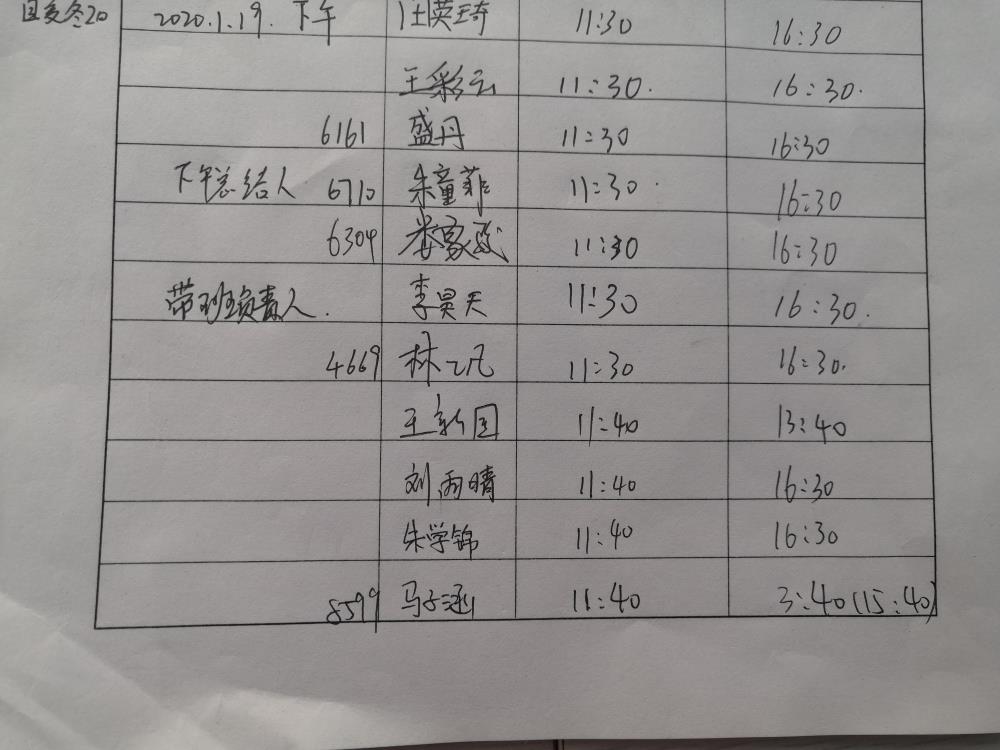 2020.1.19. 下午 汪英琦 11:30 16:30
王彩云 11:30. 16:30.
6161 盛丹 11:30 16:30
下午总结人 6710 朱童菲 11:30. 16:30
6304 家 11:30 16:30
带班负责人. 李昊天 11:30 16:30.
4669 林凡 11:30 16:30.
王新国 11:40 13:40
刘雨晴 11:40 16:30
朱学锦 11:40 16:30
8599 马子涵 11:40 3:40(15:40)